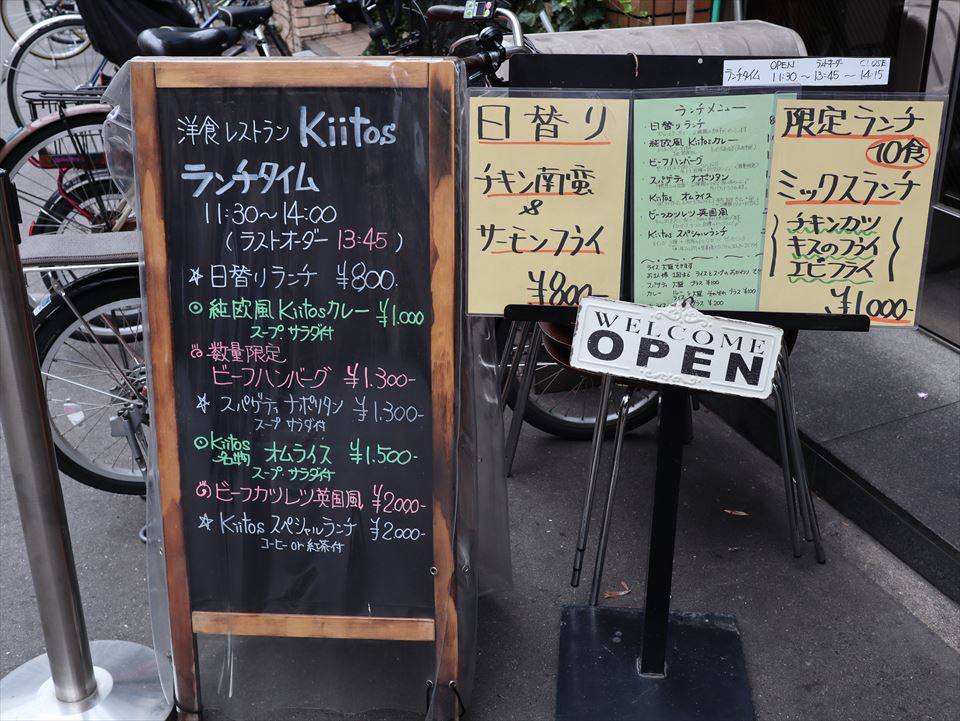 洋食レストラン Kiitos
ランチタイム
11:30～14:00
(ラストオーダー 13:45)
☆日替りランチ ¥800.
◎純欧風Kiitosカレー ¥1.000
スープ サラダ付
数量限定
ビーフハンバーグ ¥1.300-
☆スパゲティナポリタン ¥1.300-
スープ サラダ付
◎Kiitos名物 オムライス ¥1.500-
スープ・サラダ付
ビーフカツレツ英国風 ¥2.000-
☆Kiitosスペシャルランチ ¥2.000-
コーヒーor紅茶付
OPEN ラストオーダー CLOSE
ランチタイム 11:30～13:45～14:15
日替り
チキン南蛮
&
サーモンフライ
¥800
ランチメニュー
・日替りランチ
・純欧風Kiitosカレー
・ビーフハンバーグ
・スパゲティ ナポリタン
・Kiitos オムライス
・ビーフカツレツ英国風
・Kiitosスペシャルランチ
限定ランチ
10食
ミックスランチ
チキンカツ
キスのフライ
エビフライ
¥1,000
WELCOME
OPEN